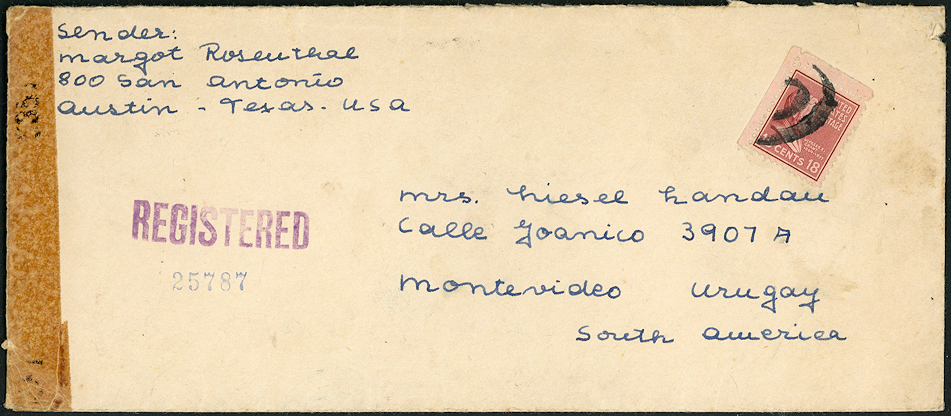 Sender:
Margot Rosenthal
800 San Antonio
Austin - Texas - USA
UNITED
STATES
POSTAGE
CENTS 18
REGISTERED
25787
Mrs. Liesel Landau
Calle Joanico 3907 A
Montevideo Urugay
South America